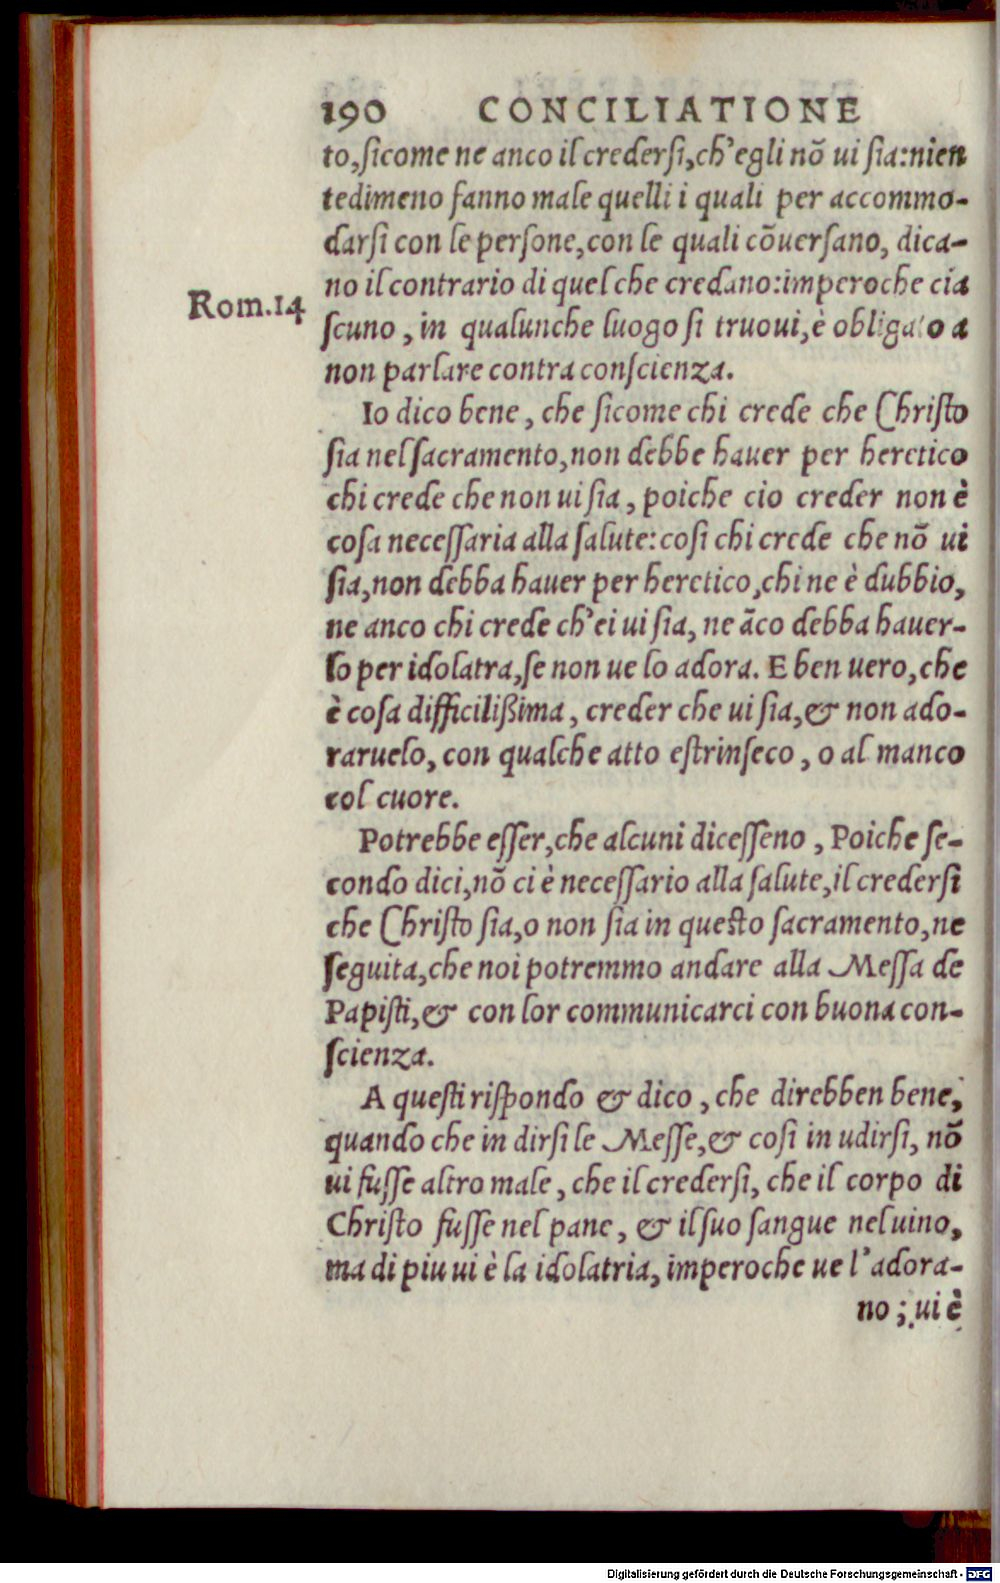 190 CONCILIATIONE
to, sicome ne anco il credersi, ch'egli nõ ui sia: nien
tedimeno fanno male quelli i quali per accommo-
darsi con le persone, con le quali cõuersano, dica-
no il contrario di quel che credano: imperoche cia
Rom. 14
scuno, in qualunche luogo si truoui, è obligato a
non parlare contra conscienza.
Io dico bene, che sicome chi crede che Christo
sia nel sacramento, non debbe hauer per heretico
chi crede che non ui sia, poiche cio creder non è
cosa necessaria alla salute: cosi chi crede che nõ ui
sia, non debba hauer per heretico, chi ne è dubbio,
ne anco chi crede ch'ei ui sia, ne ãco debba hauer-
lo per idolatra, se non ue lo adora. E ben uero, che
è cosa difficilißima, creder che ui sia, & non ado-
raruelo, con qualche atto estrinseco, o al manco
col cuore.
Potrebbe esser, che alcuni dicesseno, Poiche se-
condo dici, nõ ci è necessario alla salute, il credersi
che Christo sia, o non sia in questo sacramento, ne
seguita, che noi potremmo andare alla Messa de
Papisti, & con lor communicarci con buona con-
scienza.
A questi rispondo & dico, che direbben bene,
quando che in dirsi le Messe, & cosi in udirsi, nõ
ui fusse altro male, che il credersi, che il corpo di
Christo fusse nel pane, & il suo sangue nel uino,
ma di piu ui è la idolatria, imperoche ue l'adora-
no; ui è
Digitalisierung gefördert durch die Deutsche Forschungsgemeinschaft - DFG